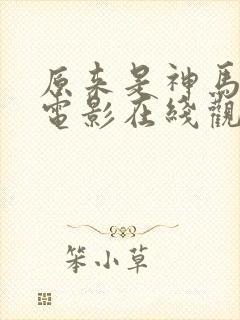 原来是神馬
電影在綫觀
笨小草